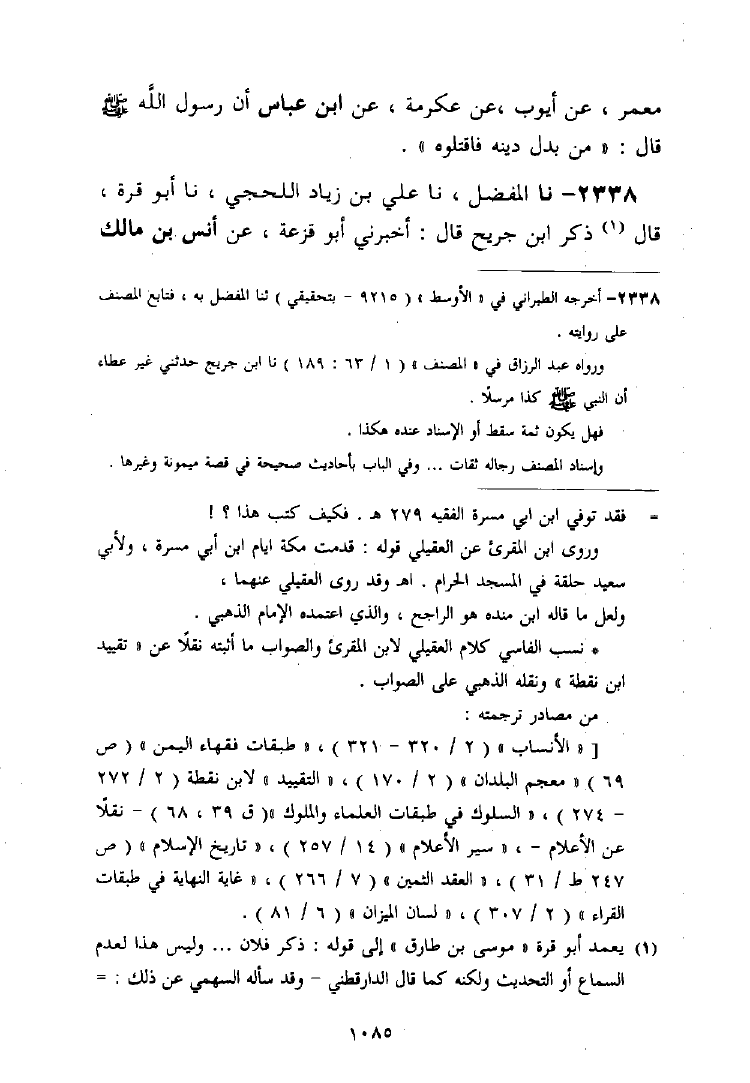 معمر ، عن أيوب ،عن عكرمة ، عن ابن عباس أن رسول اللَّه ﷺ
قال : « من بدل دينه فاقتلوه » .
٢٣٣٨– نا المفضل ، نا علي بن زياد اللحجي ، نا أبو قرة ،
قال (١) ذكر ابن جريح قال : أخبرني أبو قزعة ، عن أنس بن مالك
٢٣٣٨– أخرجه الطبراني في « الأوسط » ( ٩٢١٥ – بتحقيقي ) ثنا المفضل به ، فتابع المصنف
على روايته .
ورواه عبد الرزاق في « المصنف » ( ١ / ٦٣ : ١٨٩ ) نا ابن جريج حدثني غير عطاء
أن النبي ﷺ كذا مرسلًا .
فهل يكون ثمة سقط أو الإسناد عنده هكذا .
وإسناد المصنف رجاله ثقات ... وفي الباب بأحاديث صحيحة في قصة ميمونة وغيرها .
= فقد توفي ابن ابي مسرة الفقيه ٢٧٩ هـ . فكيف كتب هذا ؟ !
وروى ابن المقرئ عن العقيلي قوله : قدمت مكة ايام ابن أبي مسرة ، ولأبي
سعيد حلقة في المسجد الحرام . اهـ وقد روى العقيلي عنهما ،
ولعل ما قاله ابن منده هو الراجح ، والذي اعتمده الإمام الذهبي .
* نسب الفاسي كلام العقيلي لابن المقرئ والصواب ما أثبته نقلًا عن « تقييد
ابن نقطة » ونقله الذهبي على الصواب .
من مصادر ترجمته :
[ « الأنساب » ( ٢ / ٣٢٠ – ٣٢١ ) ، « طبقات فقهاء اليمن » ( ص
٦٩ ) « معجم البلدان » ( ٢ / ١٧٠ ) ، « التقييد » لابن نقطة ( ٢ / ٢٧٢
– ٢٧٤ ) ، « السلوك في طبقات العلماء والملوك »( ق ٣٩ ، ٦٨ ) – نقلًا
عن الأعلام – ، « سير الأعلام » ( ١٤ / ٢٥٧ ) ، « تاريخ الإسلام » ( ص
٢٤٧ ط / ٣١ ) ، « العقد الثمين » ( ٧ / ٢٦٦ ) ، « غاية النهاية في طبقات
القراء » ( ٢ / ٣٠٧ ) ، « لسان الميزان » ( ٦ / ٨١ ) .
(١) يعمد أبو قرة « موسى بن طارق » إلى قوله : ذكر فلان ... وليس هذا لعدم
السماع أو التحديث ولكنه كما قال الدارقطني – وقد سأله السهمي عن ذلك : =
١٠٨٥